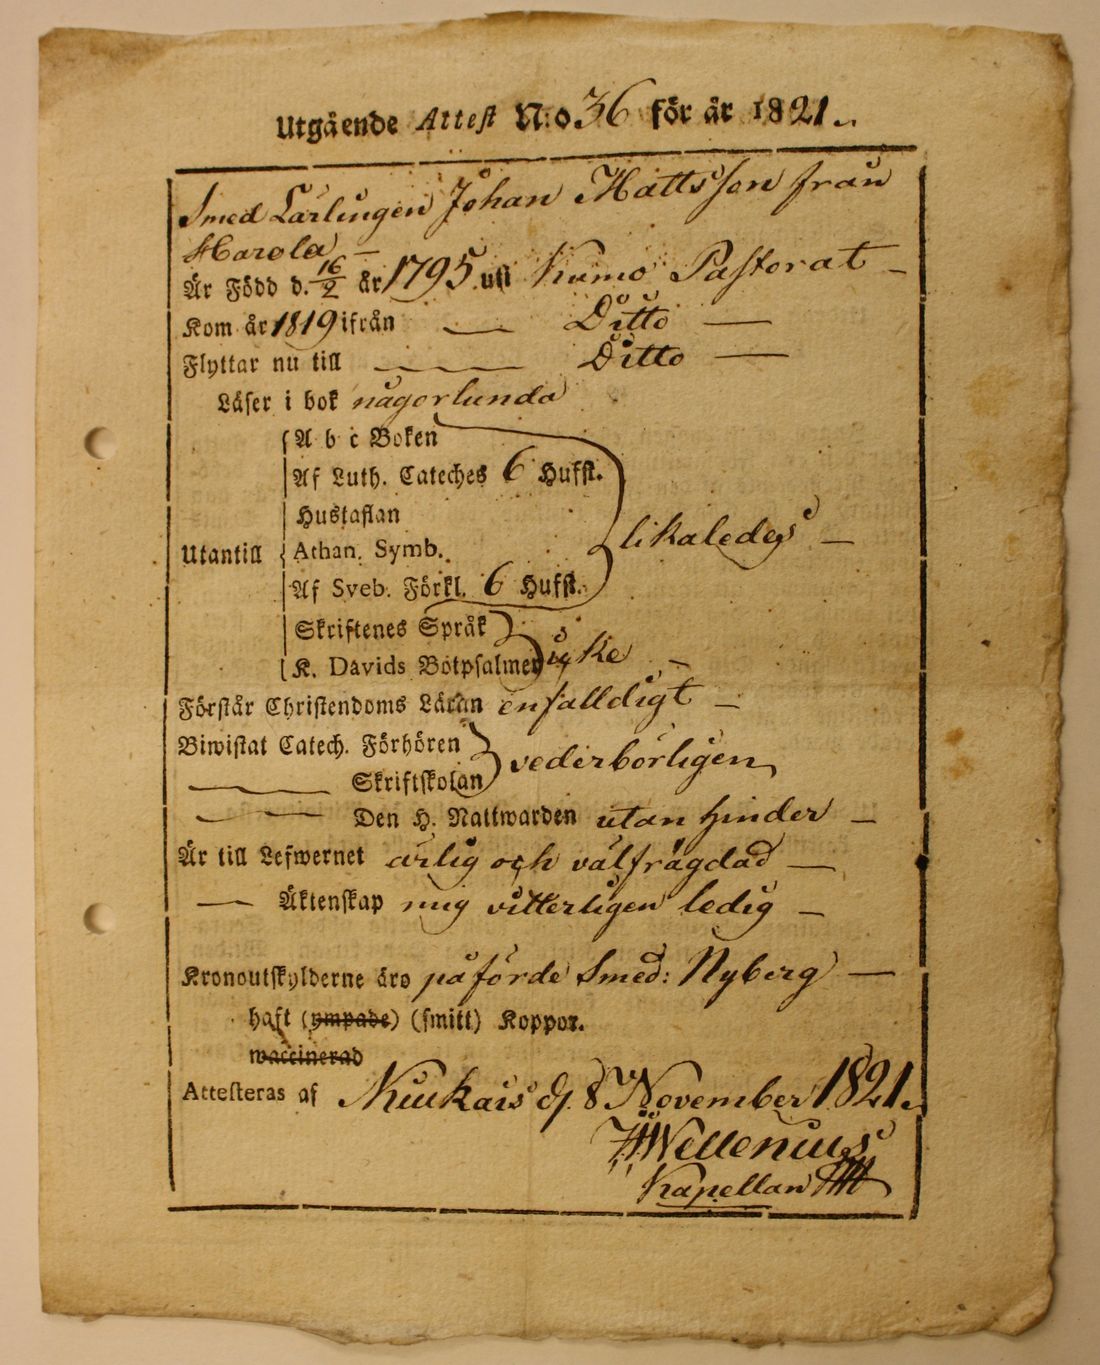 Utgående Attest N:o 36 för år 1821.
Smed Lärlingen Johan Mattsson från
Harola —
Är Född d. 16/2 år 1795 uti Kumo Pastorat —
Kom år 1819 ifrån — Ditto —
Flyttar nu till — Ditto —
Läser i bok någorlunda
A b c Boken
Af Luth. Cateches 6 Hufst.
Hustaflan
Utantill Athan. Symb. likaledes —
Af Sveb. Förkl. 6 Hufst.
Skriftenes Språk
K. Davids Botpsalmer icke —
Förstår Christendoms Läran enfalldigt —
Biwistat Catech. Förhören
— Skriftskolan vederbörligen
— Den H. Nattwarden utan hinder —
Är till Lefwernet ärlig och välfrägdad —
— Äktenskap mig vitterligen ledig —
Kronoutskylderne äro påförde Smed: Nyberg —
haft (ympade) (smitt) Koppor.
waccinerad
Attesteras af Kiukais d. 8 November 1821.
Wellenius
Kapellan